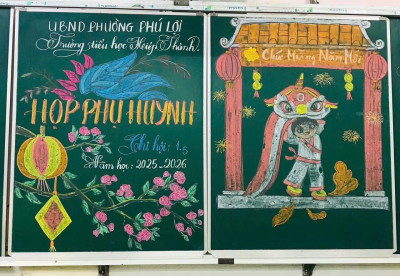 UBND PHƯỜNG PHÚ LỢI
Trường tiểu học
HỌP PHỤ HUYNH
Chi hội: 1.5
Năm học: 2025-2026
Chúc Mừng Năm Mới